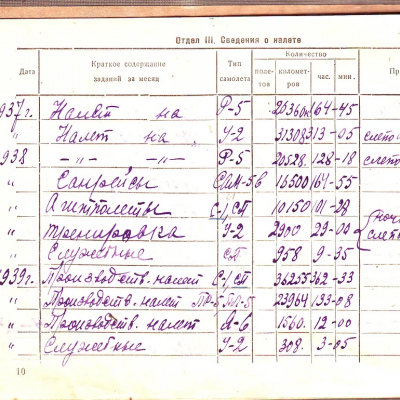 Отдел III. Сведения о налете
Дата Краткое содержание заданий за месяц Тип самолета Количество
полетов километр. час. мин.
1937 г. Налет на Р-5 20360 164-45
" Налет на У-2 31308 313-05 слепо
1938 -"- -"- Р-5 20528 128-18 слепо
" Санрейсы САМ-5в 16500 164-55
" Агитполеты С-1, СП 10150 101-28
" тренировка У-2 2900 29-00 (ноч слепы
" Служебные СП 958 9-35
1939 г. Производств. налет С-1, СП 36255 362-33
" Производств. налет ПР-5, ПЛ-5 23964 133-08
" Производств. налет Я-6 1560. 12-00
" Служебные У-2 308. 3-05
10